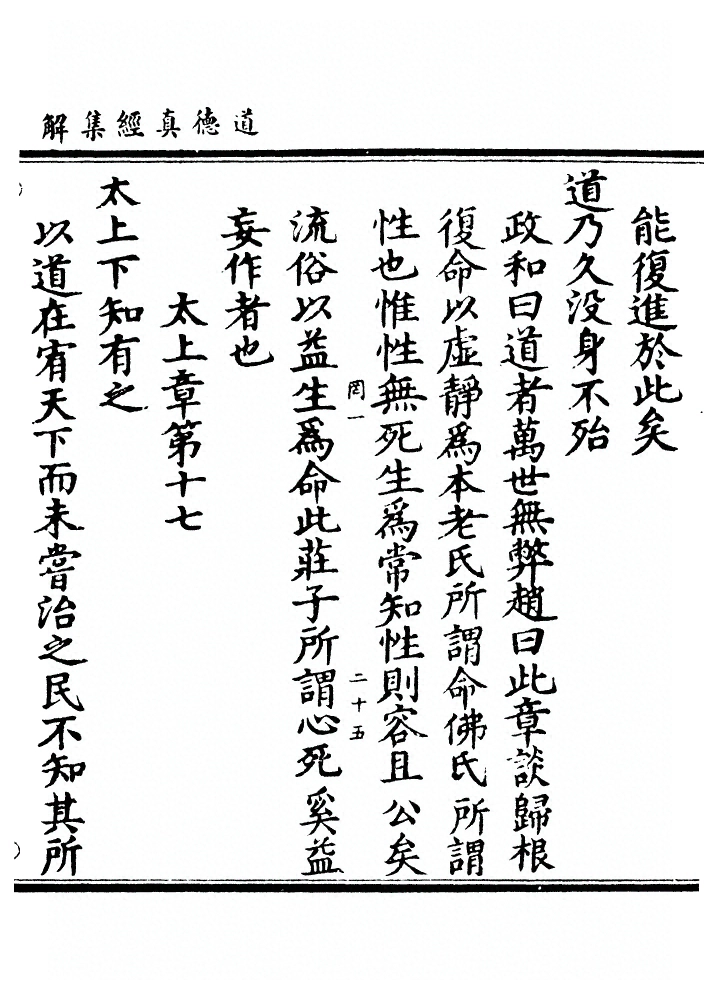 道德真經集解
能復進於此矣
道乃久没身不殆
政和曰道者萬世無弊趙曰此章談歸根
復命以虛靜為本老氏所謂命佛氏所謂
性也惟性無死生為常知性則容且公矣
罔一
二十五
流俗以益生為命此莊子所謂心死奚益
妄作者也
太上章第十七
太上下知有之
以道在宥天下而未嘗治之民不知其所